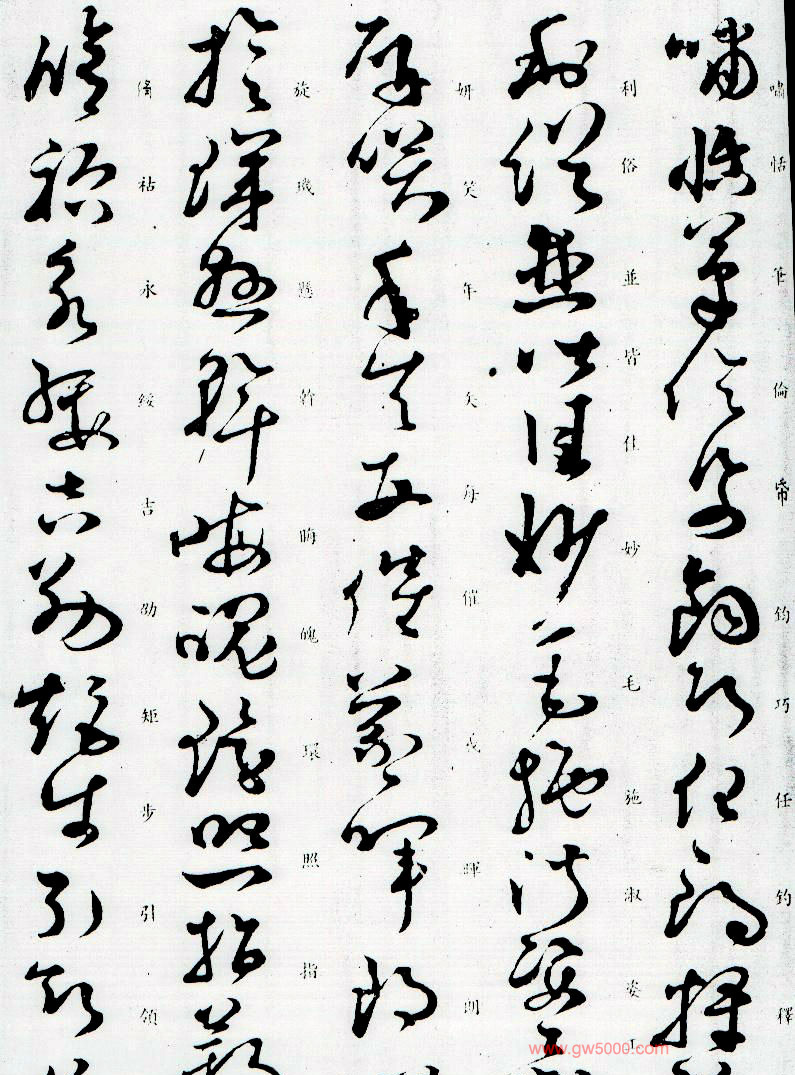 嘯恬筆倫帋鈞巧任釣釋
利俗並皆佳妙毛施淑姿工
妍笑年矢每催羲暉朗
旋璣懸斡晦魄環照指薪
脩祜永綏吉劭矩步引領
www.gw5000.com